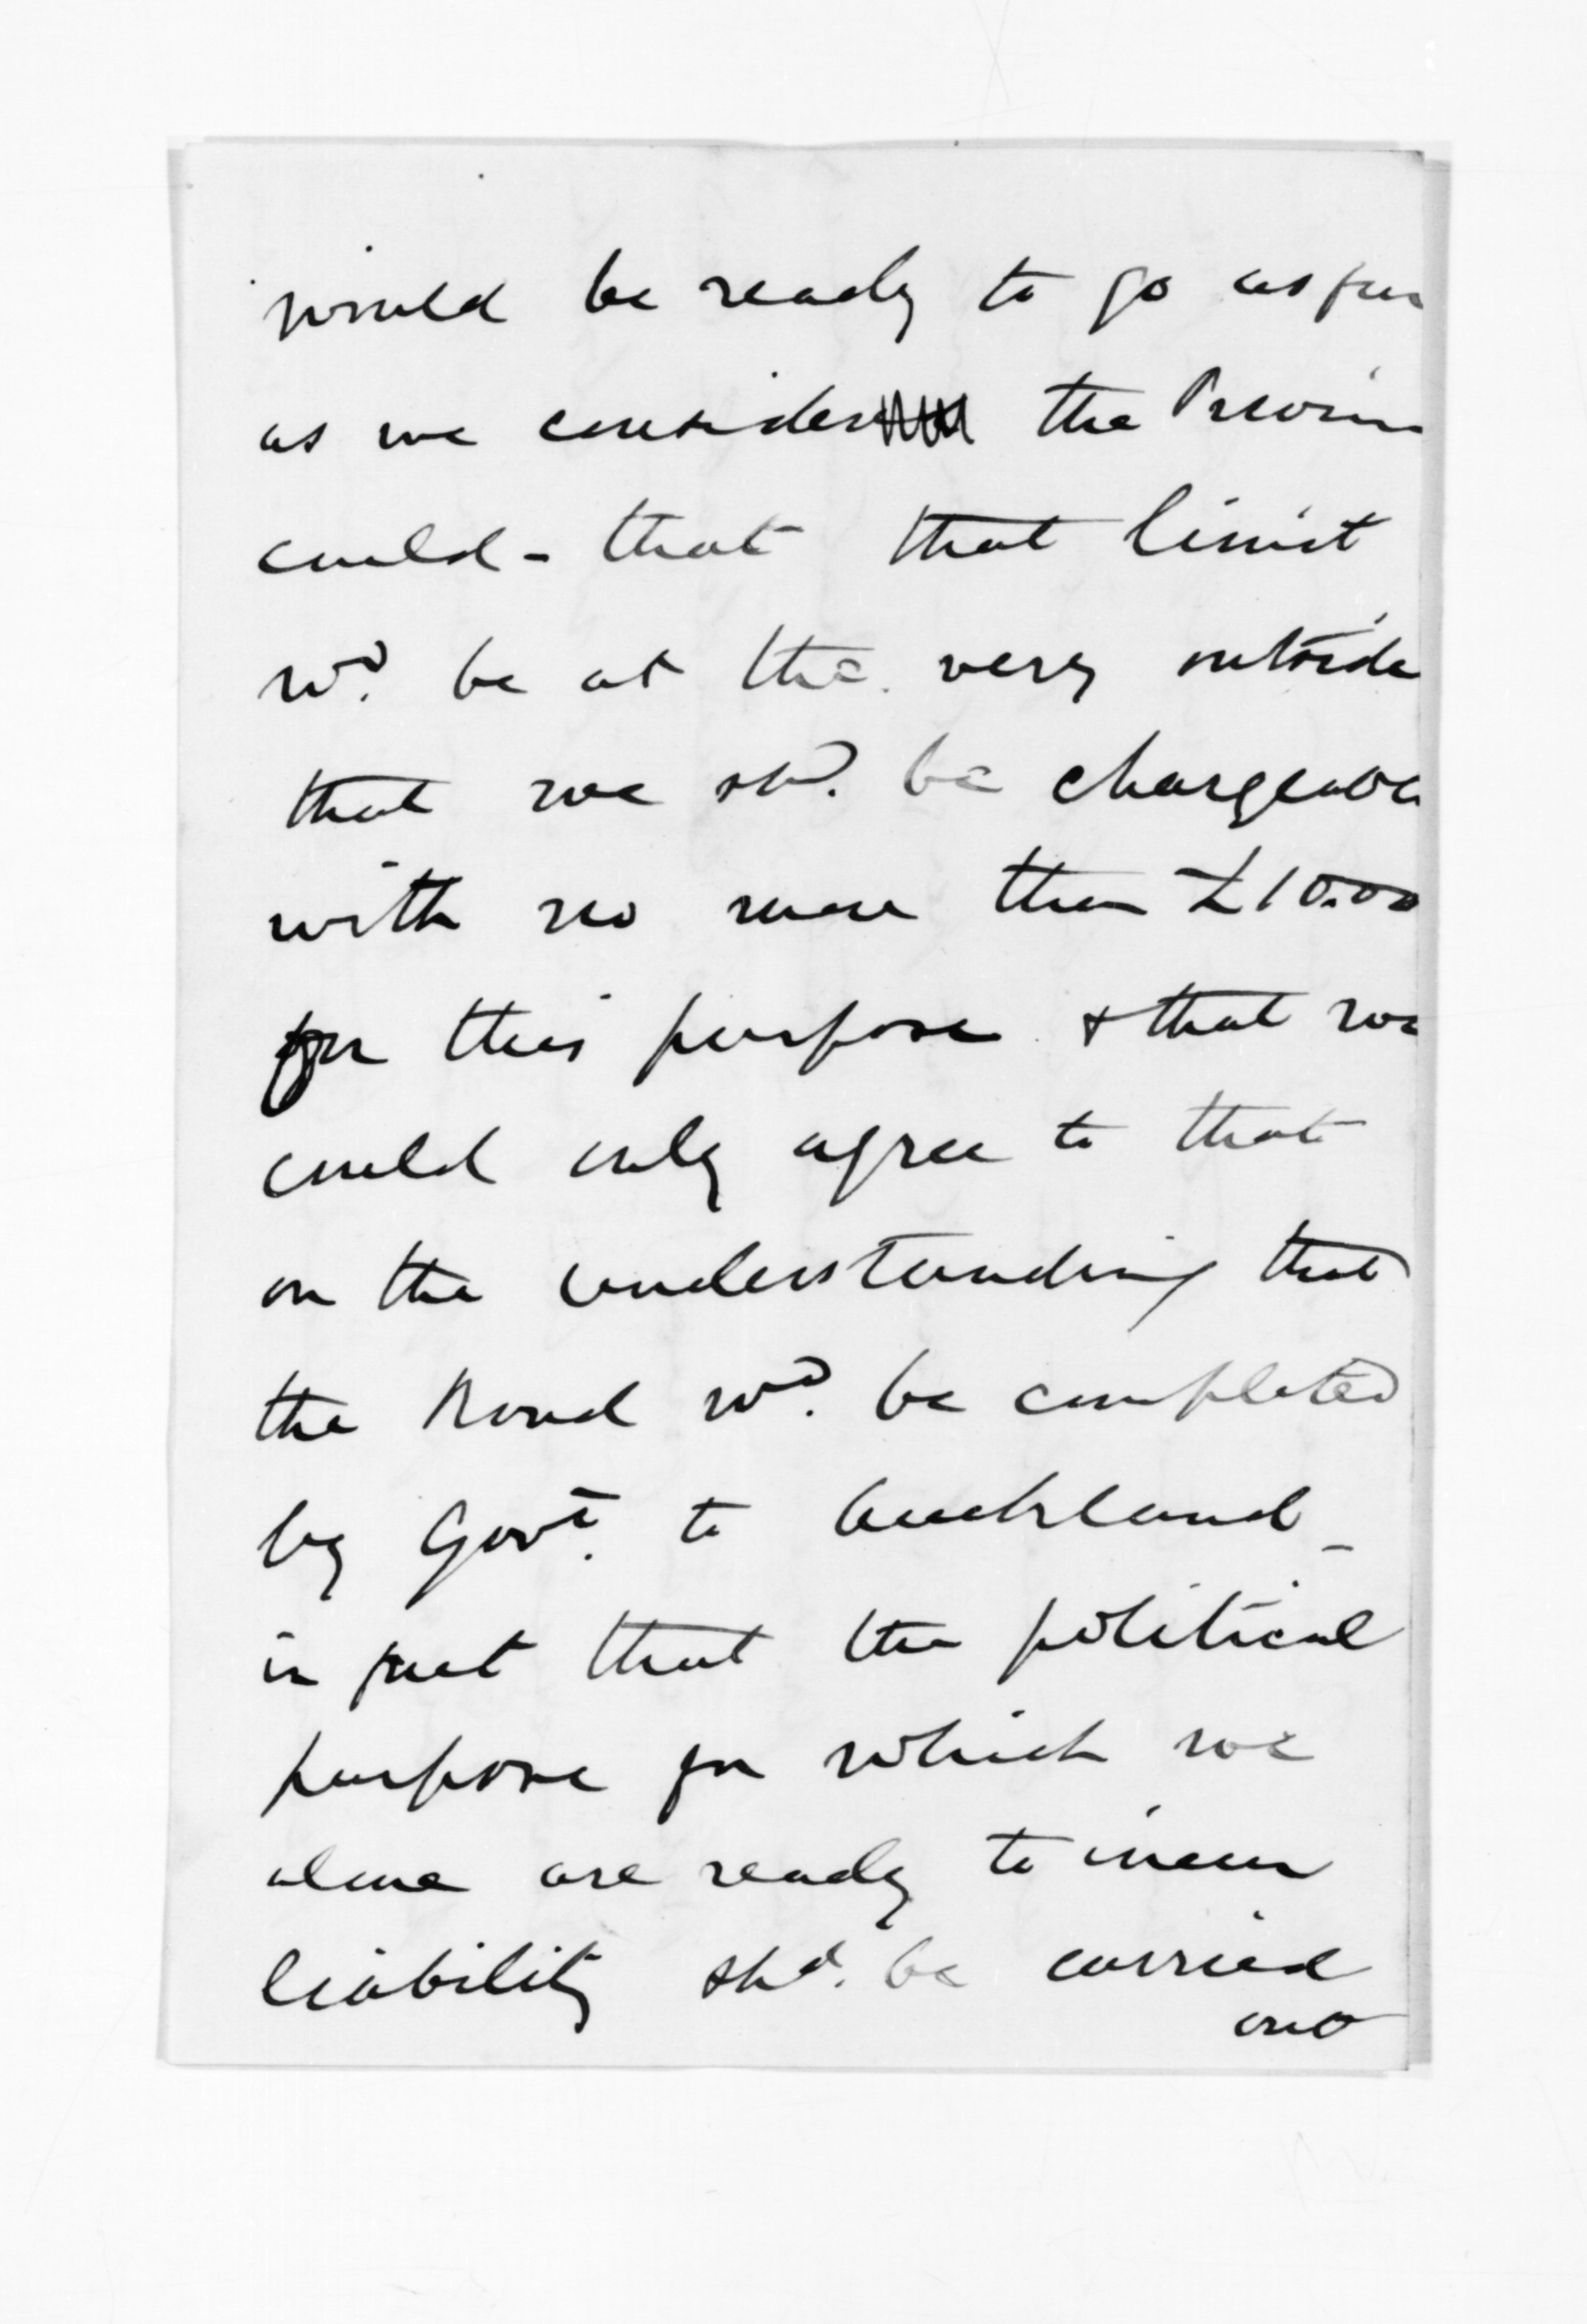 would be ready to go as far
as we consider the Provin
could - that that limit
wd. be at the very outside
that we shd. be chargeable
with no more than £10.00
for this purpose & that we
could only agree to that
on the understanding that
the Road wd. be completed
by Govt. to Auckland -
in fact that the political
purpose for which we
alone are ready to incur
liability shd. be carried
out